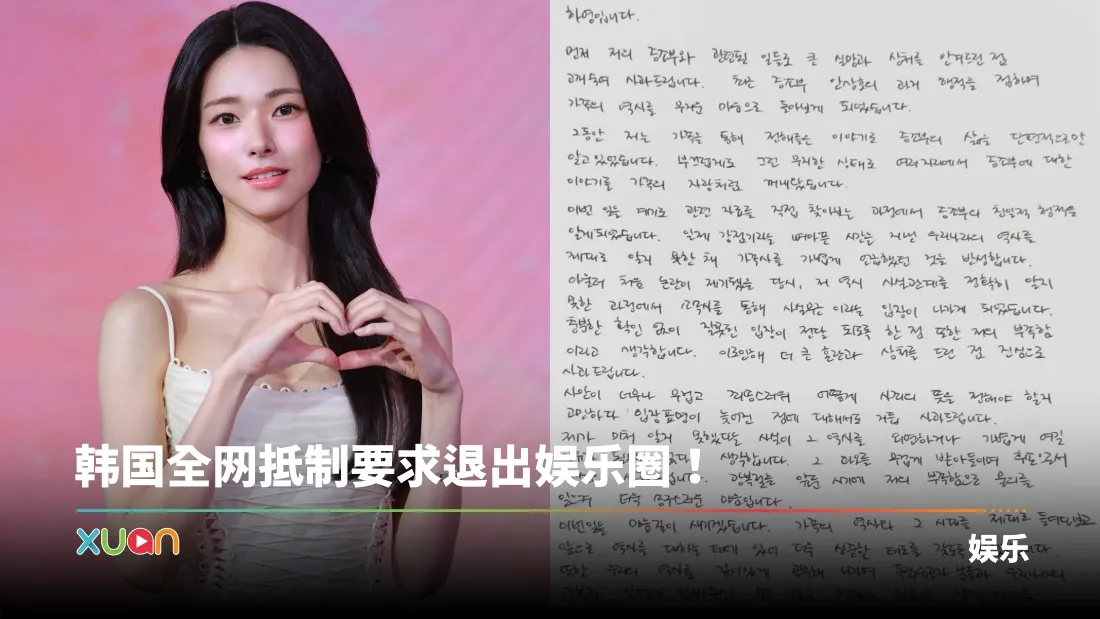 하영입니다.
먼저 저의 증조부와 관련된 일들로 큰 실망과 상처를 안겨드린 점
고개숙여 사과드립니다. 최근 증조부 안상호의 과거 행적을 접하며
가족의 역사를 무거운 마음으로 돌아보게 되었습니다.
그동안 저는 가족을 통해 전해들은 이야기로 증조부의 삶을 단편적으로만
알고 있었습니다. 부끄럽게도 그런 무지한 상태로 여러자리에서 증조부에 대한
이야기를 가족의 자랑처럼 꺼내왔습니다.
이번 일을 계기로 관련 자료를 직접 찾아보는 과정에서 증조부의 친일적 행적을
알게되었습니다. 일제 강점기라는 뼈아픈 시간을 지낸 우리나라의 역사를
제대로 알지 못한 채 가족사를 가볍게 언급했던 것을 반성합니다.
아울러 처음 논란이 제기됐을 당시, 저 역시 사실관계를 정확히 알지
못한 과정에서 회사를 통해 사실무근 이라는 입장이 나가게 되었습니다.
충분한 확인 없이 잘못된 입장이 전달 되도록 한 점 또한 저의 부족함
이라고 생각합니다. 이로인해 더 큰 혼란과 상처를 드린 점 진심으로
사과드립니다.
사안이 너무나 무겁고 죄송스러워 어떻게 사죄의 뜻을 전해야 할지
고민하다 입장표명이 늦어진 점에 대해서도 거듭 사과드립니다.
제가 미처 알지 못했다는 사실이 그 역사를 외면하거나 가볍게 여길
생각합니다. 그 무겁게 받아들이며
광복절을 앞둔 시기에 저의 부족함으로 심려를
더욱 송구스러운 마음입니다.
이번일을 마음깊이 새기겠습니다. 가족의 역사와 그 시대를 제대로 들여다보고
앞으로 역사를 대하는 데에 있어 더욱 신중한 태도를 갖도록
또한 우리의 역사를 깊이있게 공부해 나가며 독립유공자
韩国全网抵制要求退出娱乐圈！
xuan
娱乐